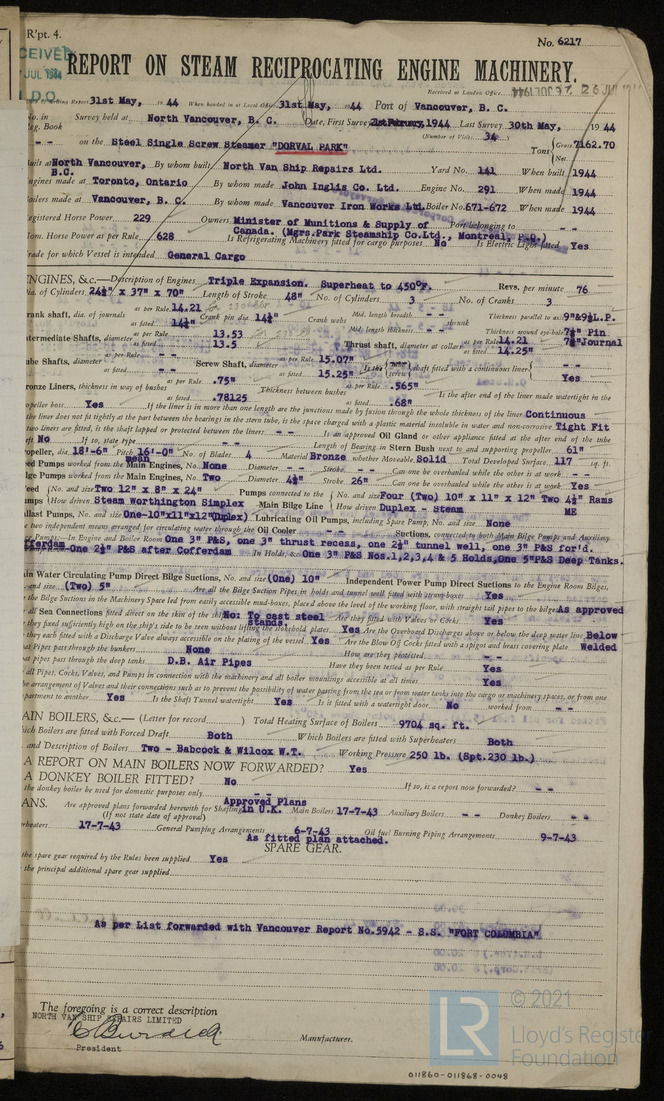 R'pt. 4.
No. 6217
CEIVED
JUL 1944
D.O.
REPORT ON STEAM RECIPROCATING ENGINE MACHINERY.
Received at London Office
Report 31st May, 1944 When handed in at Local Office 31st May, 1944 Port of Vancouver, B. C.
No. in Survey held at North Vancouver, B. C. Date, First Survey 1944 Last Survey 30th May, 1944
Reg. Book (Number of Visits 34)
-- on the Steel Single Screw Steamer "DORVAL PARK" Tons Gross 7162.70 Net
built at North Vancouver, B.C. By whom built North Van Ship Repairs Ltd. Yard No. 141 When built 1944
Engines made at Toronto, Ontario By whom made John Inglis Co. Ltd. Engine No. 291 When made 1944
Boilers made at Vancouver, B. C. By whom made Vancouver Iron Works Ltd. Boiler No. 671-672 When made 1944
Registered Horse Power 229 Owners Minister of Munitions & Supply of Canada. (Mgrs. Park Steamship Co.Ltd., Montreal, P.Q.) Port belonging to --
Nom. Horse Power as per Rule 628 Is Refrigerating Machinery fitted for cargo purposes No Is Electric Light fitted Yes
Trade for which Vessel is intended General Cargo
ENGINES, &c.—Description of Engines Triple Expansion. Superheat to 450°F. Revs. per minute 76
Dia. of Cylinders 24½" x 37" x 70" Length of Stroke 48" No. of Cylinders 3 No. of Cranks 3
Crank shaft, dia. of journals as per Rule 14.21 as fitted 14¼" Crank pin dia. 14¼" Crank webs Mid. length breadth -- Mid. length thickness -- shrunk Thickness parallel to axis 9"&9½L.P. Thickness around eye-hole 7⅛" Pin 7⅛" Journal
Intermediate Shafts, diameter as per Rule 13.53 as fitted 13.5 Thrust shaft, diameter at collars as per Rule 14.21 as fitted 14.25"
Tube Shafts, diameter as per Rule -- as fitted -- Screw Shaft, diameter as per Rule 15.07" as fitted 15.25" Is the screw shaft fitted with a continuous liner Yes
Bronze Liners, thickness in way of bushes as per Rule .75" as fitted .78125 Thickness between bushes as per Rule .565" as fitted .68" Is the after end of the liner made watertight in the
propeller boss Yes If the liner is in more than one length are the junctions made by fusion through the whole thickness of the liner Continuous
the liner does not fit tightly at the part between the bearings in the stern tube, is the space charged with a plastic material insoluble in water and non-corrosive Tight Fit
two liners are fitted, is the shaft lapped or protected between the liners -- Is an approved Oil Gland or other appliance fitted at the after end of the tube
shaft No If so, state type -- Length of Bearing in Stern Bush next to and supporting propeller 61"
Propeller, dia. 18'-6" Pitch 16'-0" mean No. of Blades 4 Material Bronze whether Moveable Solid Total Developed Surface 117 sq. ft.
Feed Pumps worked from the Main Engines, No. None Diameter -- Stroke -- Can one be overhauled while the other is at work --
Bilge Pumps worked from the Main Engines, No. Two Diameter 4½" Stroke 26" Can one be overhauled while the other is at work Yes
Feed (No. and size Two 12" x 8" x 24" Pumps connected to the Main Bilge Line No. and size Four (Two) 10" x 11" x 12" Two 4½" Rams
Pumps (How driven Steam Worthington Simplex How driven Duplex - Steam ME
Ballast Pumps, No. and size One-10"x11"x12"(Duplex) Lubricating Oil Pumps, including Spare Pump, No. and size None
two independent means arranged for circulating water through the Oil Cooler Suctions, connected to both Main Bilge Pumps and Auxiliary
Pumps:—In Engine and Boiler Room One 3" P&S, one 3" thrust recess, one 2½" tunnel well, one 3" P&S for'd.
fferdam One 2½" P&S after Cofferdam In Holds, &c. One 3" P&S Nos.1,2,3,4 & 5 Holds, One 5"P&S Deep Tanks.
Main Water Circulating Pump Direct Bilge Suctions, No. and size (One) 10" Independent Power Pump Direct Suctions to the Engine Room Bilges,
and size (Two) 5" Are all the Bilge Suction Pipes in holds and tunnel well fitted with strum-boxes Yes
the Bilge Suctions in the Machinery Space led from easily accessible mud-boxes, placed above the level of the working floor, with straight tail pipes to the bilges As approved
all Sea Connections fitted direct on the skin of the ship No: To cast steel stands. Are they fitted with Valves or Cocks Yes
they fixed sufficiently high on the ship's side to be seen without lifting the stokehold plates Yes Are the Overboard Discharges above or below the deep water line Below
they each fitted with a Discharge Valve always accessible on the plating of the vessel Yes Are the Blow Off Cocks fitted with a spigot and brass covering plate Welded
at Pipes pass through the bunkers None How are they protected --
at pipes pass through the deep tanks D.B. Air Pipes Have they been tested as per Rule Yes
all Pipes, Cocks, Valves, and Pumps in connection with the machinery and all boiler mountings accessible at all times Yes
the arrangement of Valves and their connections such as to prevent the possibility of water passing from the sea or from water tanks into the cargo or machinery spaces, or from one
partment to another Yes Is the Shaft Tunnel watertight Yes Is it fitted with a watertight door No worked from --
MAIN BOILERS, &c.— (Letter for record ) Total Heating Surface of Boilers 9704 sq. ft.
Which Boilers are fitted with Forced Draft Both Which Boilers are fitted with Superheaters Both
and Description of Boilers Two - Babcock & Wilcox W.T. Working Pressure 250 lb. (Spt.230 lb.)
A REPORT ON MAIN BOILERS NOW FORWARDED? Yes
A DONKEY BOILER FITTED? No If so, is a report now forwarded? --
the donkey boiler be used for domestic purposes only --
ANS. Are approved plans forwarded herewith for Shafting Approved Plans in U.K. Main Boilers 17-7-43 Auxiliary Boilers -- Donkey Boilers --
(If not state date of approval)
rheaters 17-7-43 General Pumping Arrangements 6-7-43 Oil fuel Burning Piping Arrangements 9-7-43
As fitted plan attached.
SPARE GEAR.
the spare gear required by the Rules been supplied Yes
the principal additional spare gear supplied
As per List forwarded with Vancouver Report No.5942 - S.S. "FORT COLUMBIA"
The foregoing is a correct description
NORTH VAN SHIP REPAIRS LIMITED
President
Manufacturer.
LR © 2021
Lloyd's Register
Foundation
011860-011868-0048